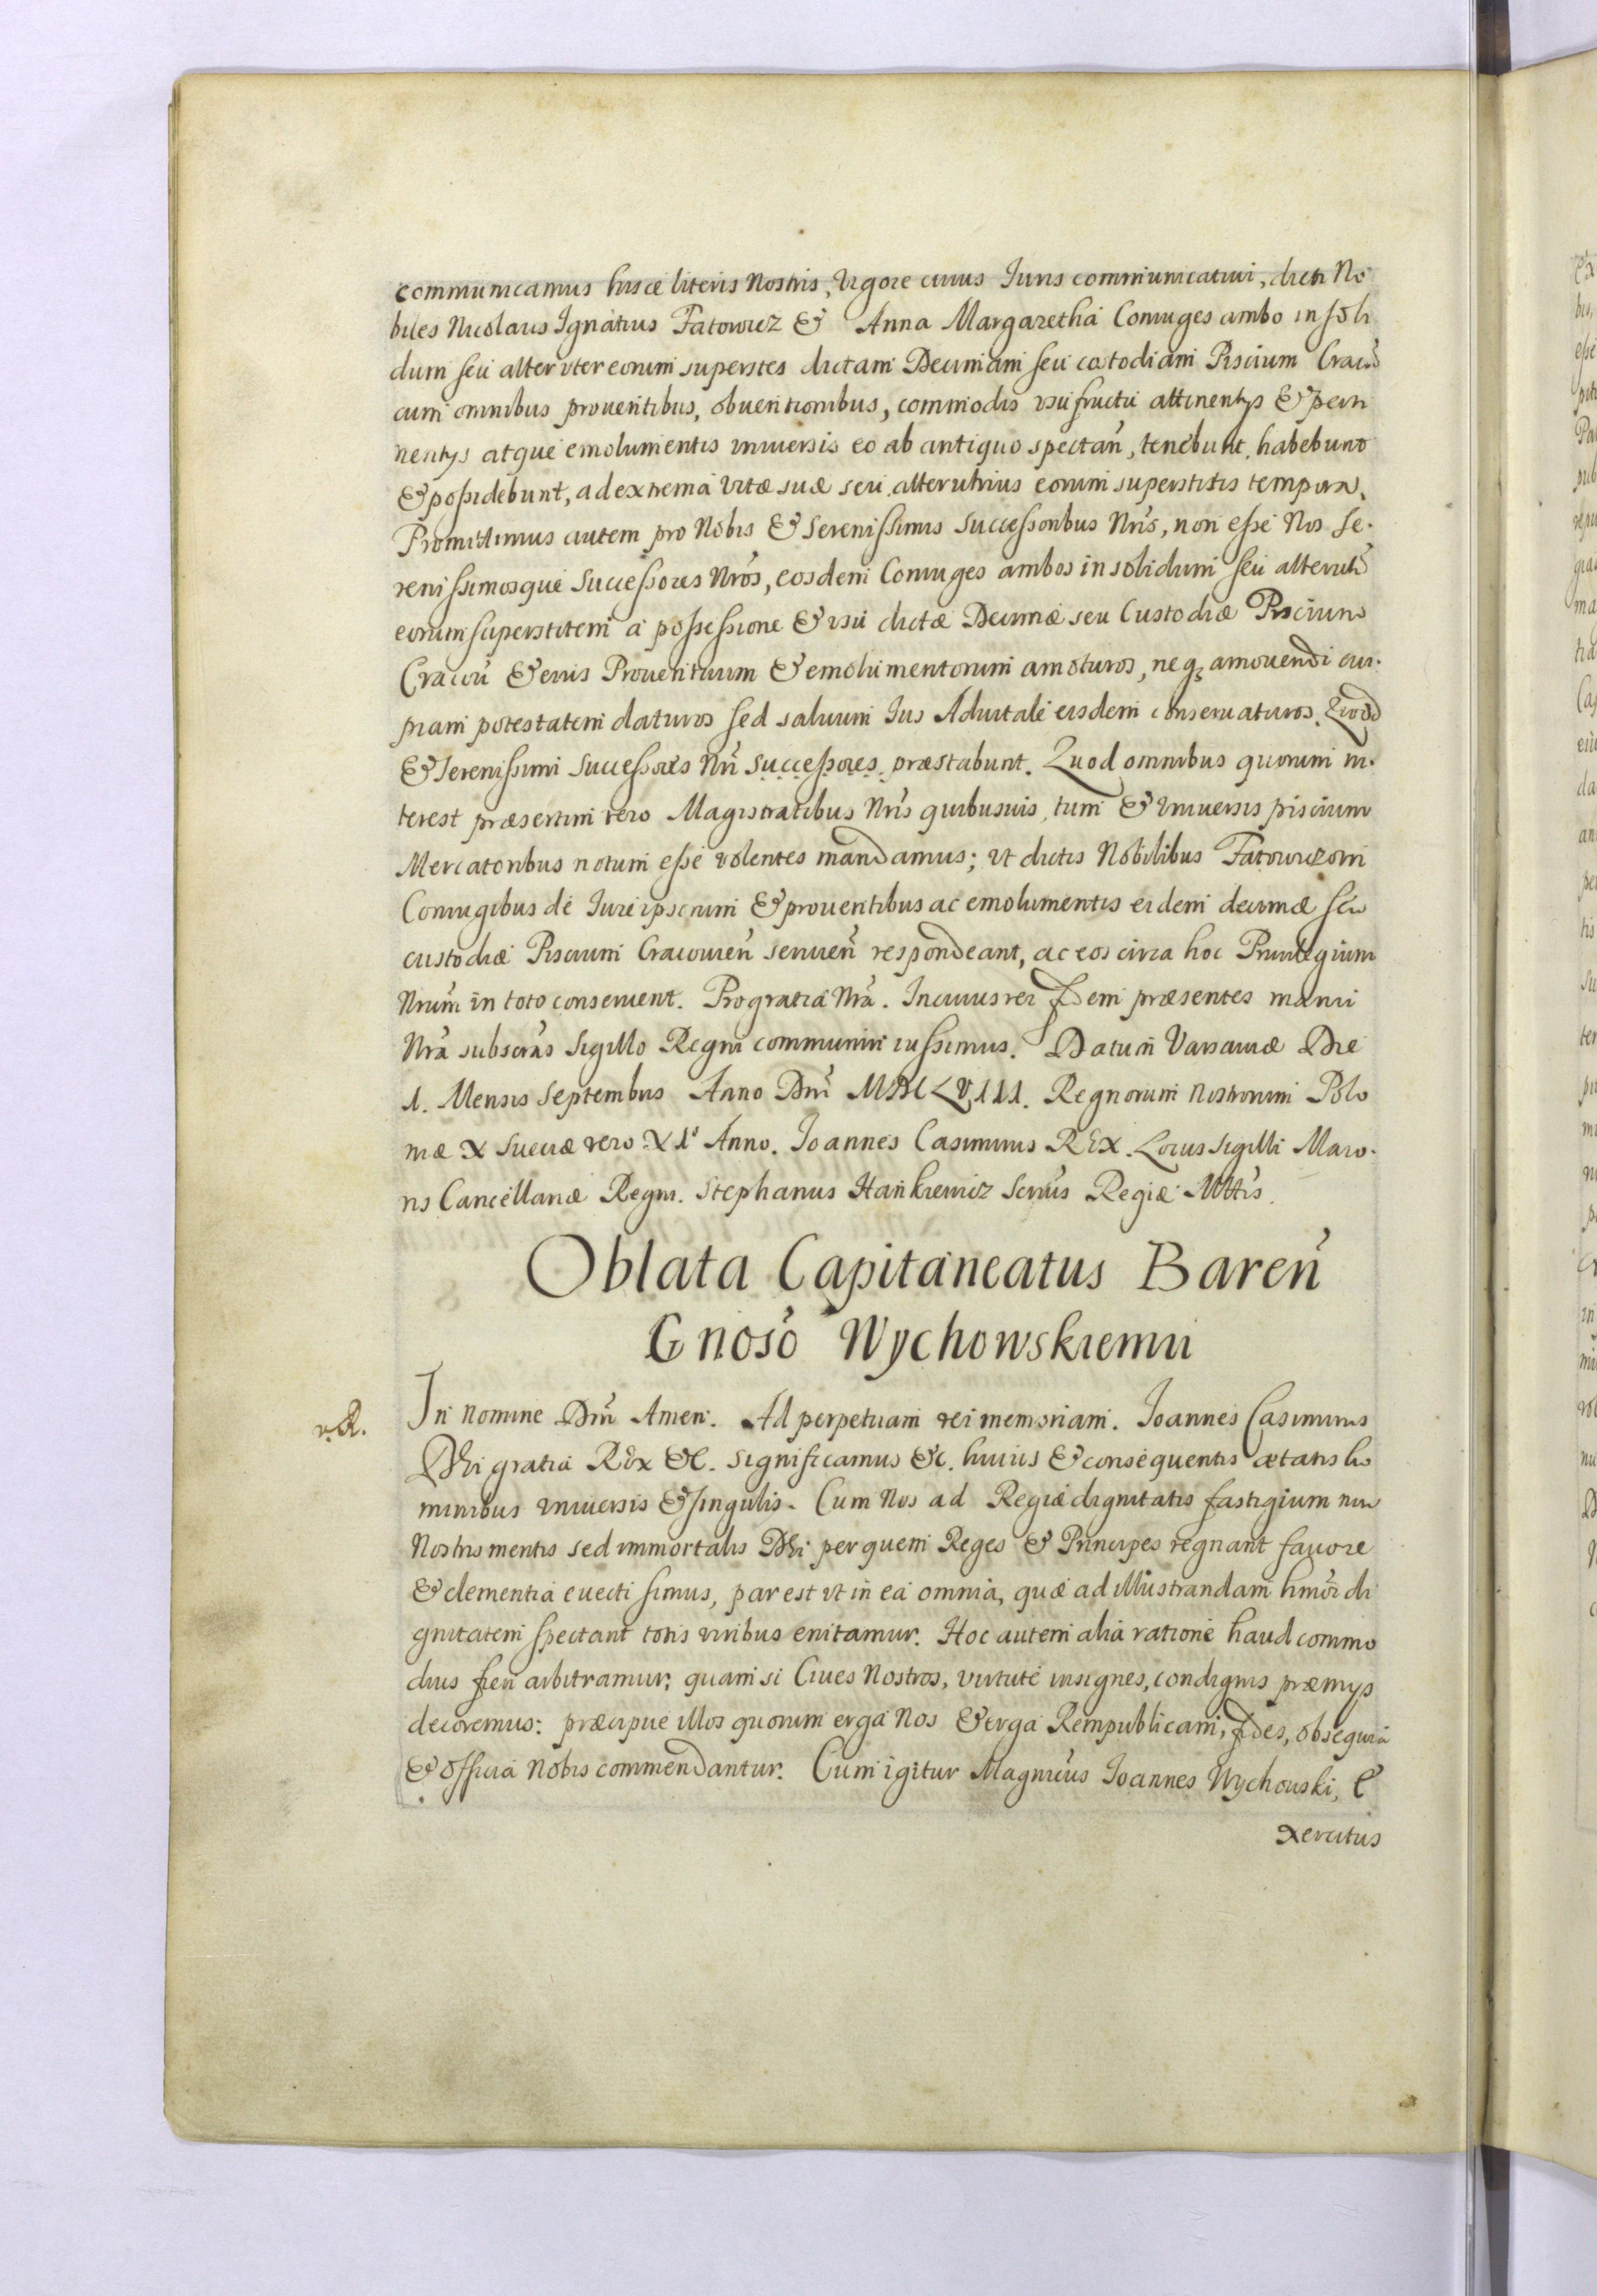 communicamus hisce literis Nostris, Vigore cuius Iuris communicativi, dicti No
biles Nicolaus Ignatius Fatowicz & Anna Margaretha Coniuges ambo in soli
dum seu alteruter eorum superstes dictam Decimam seu custodiam Piscium Cracoũ
cum omnibus prouentibus, obuentionibus, commodis usufructu attinentys & perti
nentys atque emolumentis vniuersis eo ab antiquo spectañ, tenebunt, habebunt
& possidebunt, ad extrema vitæ suæ seu alterutrius eorum superstitis tempora.
Promittimus autem pro Nobis & Serenissimis Successoribus Nr̃is, non esse Nos Se-
renissimosque Successores Nr̃os, eosdem Coniuges ambos in solidum seu alterutr̃
eorum superstitem a possessione & usu dictæ Decimæ seu Custodiæ Piscium
Cracoũ & eius Prouentuum & emolumentorum amoturos, neq; amouendi cui-
piam potestatem daturos sed saluum Ius Aduitale eisdem conseruaturos. Quod
& Serenissimi Successores Nr̃i successores præstabunt. Quod omnibus quorum in-
terest præsertim vero Magistratibus Nr̃is quibusuis, tum & vniuersis piscium
Mercatoribus notum esse volentes mandamus; ut dictis Nobilibus Fatowiczom
Coniugibus de Iure ipsorum & prouentibus ac emolumentis eidem decimæ seu
custodiæ Piscium Cracouieñ seruieñ respondeant, ac eos circa hoc Priuilegium
Nrum̃ in toto conseruent. Pro gratia Nr̃a. In cuius rei fidem præsentes manu
Nr̃a subscr̃as Sigillo Regni communiri iussimus. Datum Varsauiæ Die
1. Mensis Septembris Anno Dñi MDCLVIII. Regnorum Nostrorum Polo
niæ X Sueciæ vero XI° Anno. Ioannes Casimirus REX. Locus Sigilli Maio-
ris Cancellariæ Regni. Stephanus Hañkiewicz Secr̃ius Regiæ Mttis.
Oblata Capitaneatus Bareñ
Gnoso Wychowskiemu
v.R.
In Nomine Dñi Amen. Ad perpetuam rei memoriam. Ioannes Casimirus
Dei gratia REx &c. Significamus &c. huius & consequentis ætatis ho
minibus vniuersis & singulis. Cum Nos ad Regiæ dignitatis fastigium non
Nostris meritis sed immortalis Dei per quem Reges & Principes regnant fauore
& clementia euecti simus, par est ut in ea omnia, quæ ad illustrandam hmõi di
gnitatem spectant totis viribus enitamur. Hoc autem alia ratione haud commo
dius fieri arbitramur; quam si Ciues Nostros, virtute insignes, condignis præmys
decoremus: præcipue illos quorum erga Nos & erga Rempublicam, fides, obsequia
& officia Nobis commendantur. Cum igitur Magnicus Ioannes Wychouski, E
xercitus